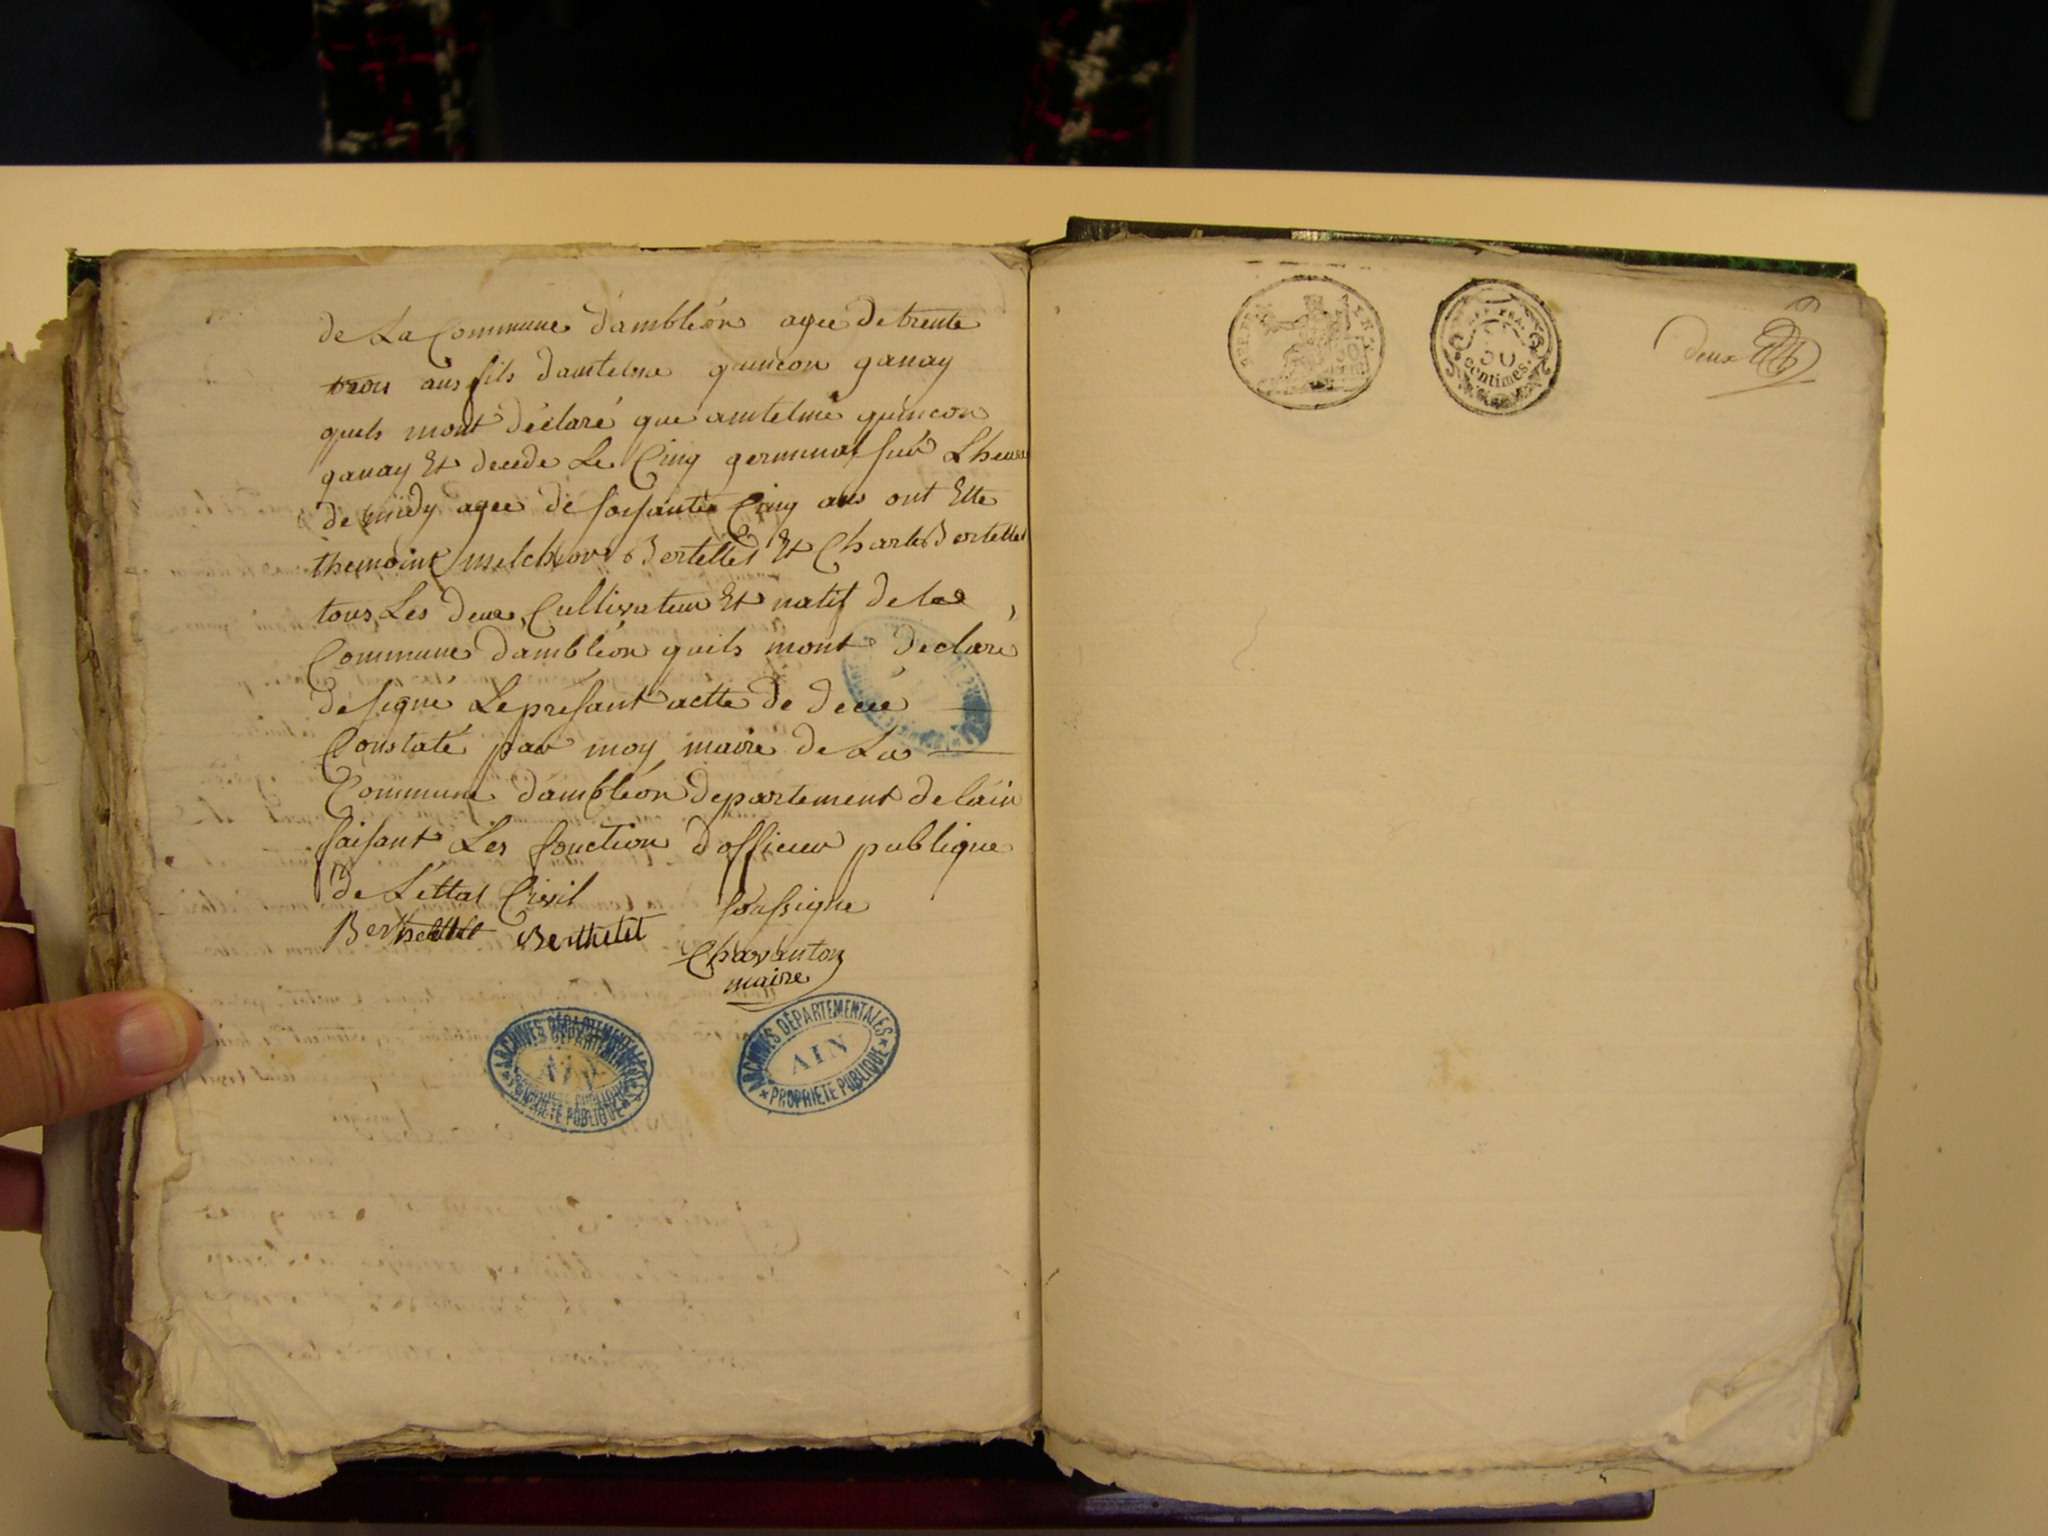 de La Commune d'ambléon agee de trente
trois ans fils dantelme quincon ganay
quils mont déclaré que antelme quincon
ganay Et decede Le Cinq germinal sur Lheure
de midy agee de soisante Cinq ans ont Ette
themoint melchior Bertellet Et Charle Bertellet
tous Les deux Cultivateur Et natif de la
Commune dambléon quils mont declaré
de signé Le présant actte de decé
Constaté par moy maire de La
Commune d'ambléon departement de lain
faisant Les fonction d'officier publique
de L'ettat Civil soussigne
Berthellet Berthelet
Chavanton
maire
ARCHIVES DÉPARTEMENTALES
AIN
PROPRIÉTÉ PUBLIQUE
ARCHIVES DÉPARTEMENTALES
AIN
PROPRIÉTÉ PUBLIQUE
REP. FRA.
50
centimes.
deux